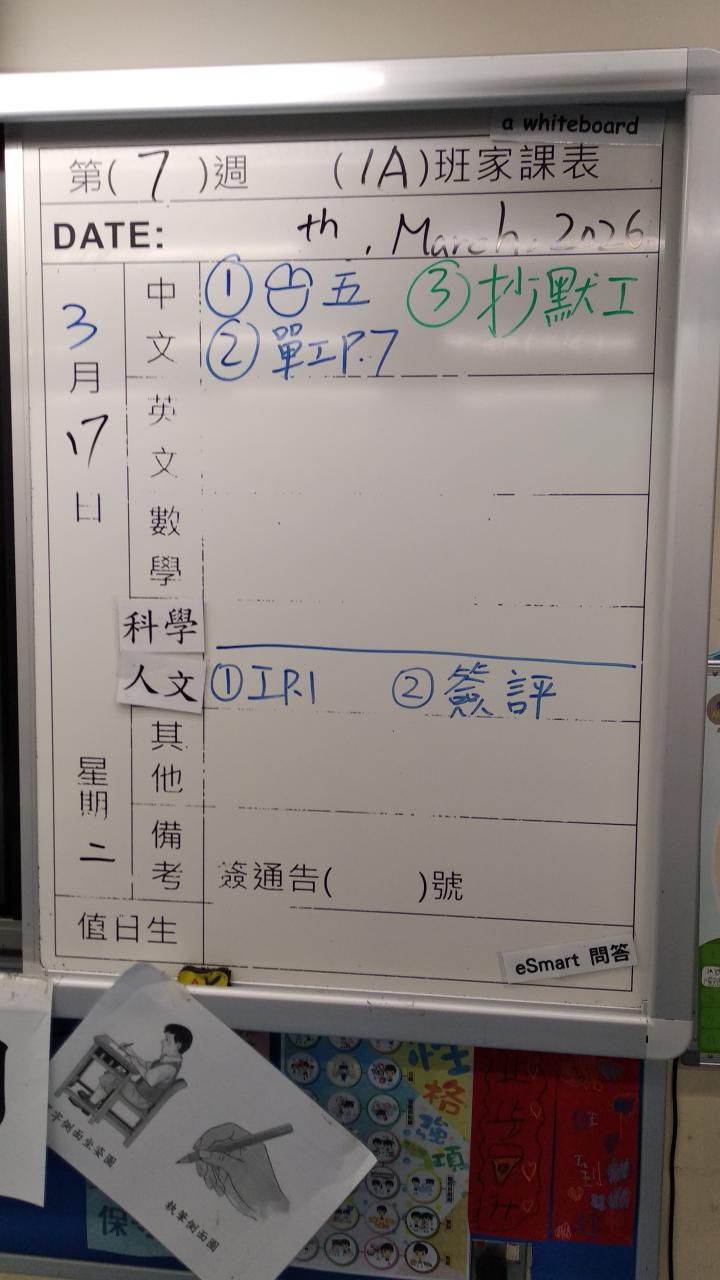 a whiteboard
第( 7 )週 (1A)班家課表
DATE: th, March, 2026
3月17日
星期二
中文
① 五 ③抄默工
②單工P.7
英文
數學
科學
人文 ①工P.1 ②簽評
其他
備考 簽通告( )號
值日生
eSmart 問答
字側面坐姿圖
執筆側面圖
性格強項